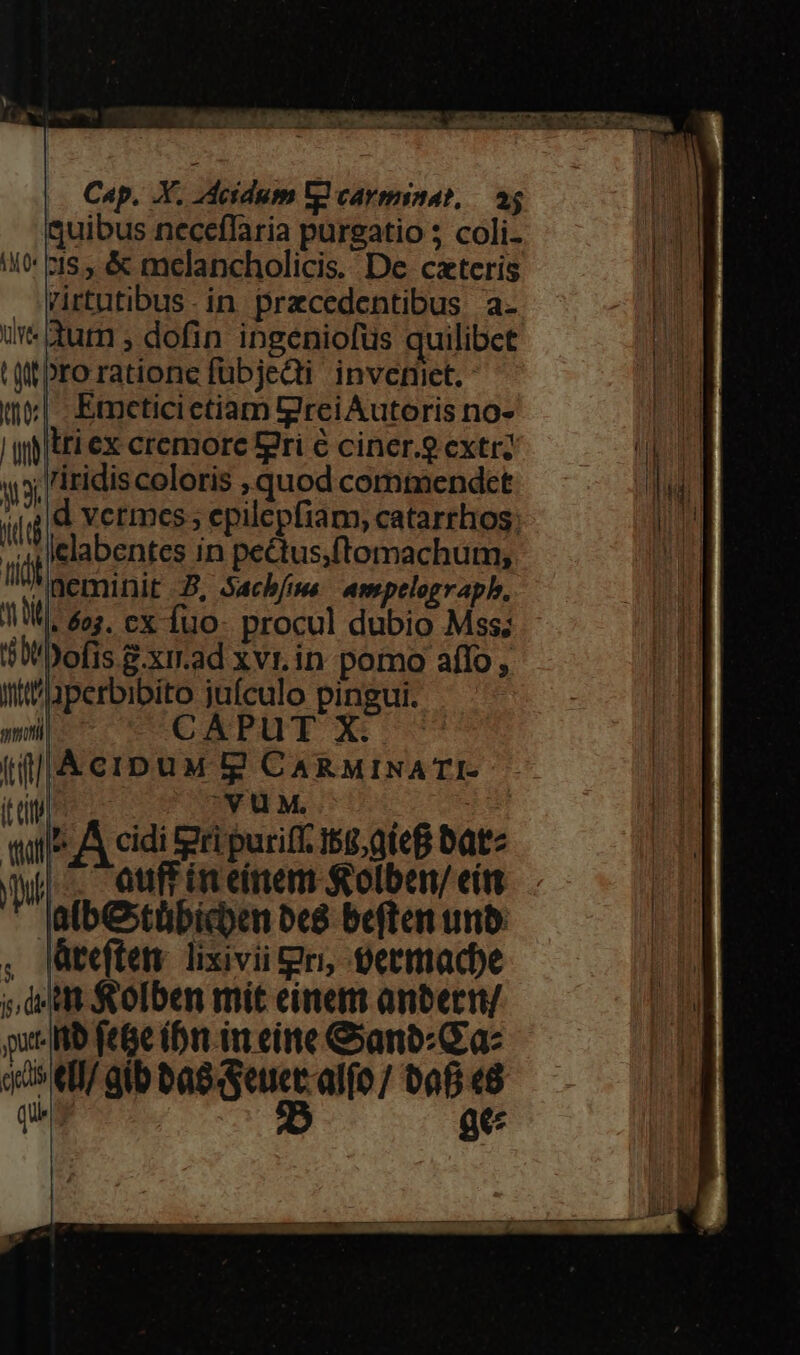 Cap. X. Acidum 🜿 carminat. 25
quibus necessaria purgatio; coli-
cis, & melancholicis. De cæteris
virtutibus in præcedentibus a-
ctum, dosin ingeniosus quilibet
pro ratione subjecti inveniet.
Emetici etiam 🜿rei Autoris no-
tri ex cremore 🜿ri è ciner.♀ extr.
viridis coloris, quod commendet
ad vermes, epilepsiam, catarrhos
delabentes in pectus, stomachum,
meminit B, Sachsius ampelograph.
603. ex suo procul dubio Mss:
Dosis g. xii. ad xvi. in pomo asso,
superbibito jusculo pingui.
CAPUT X.
ACIDUM 🜿 CARMINATI-
VUM.
Acidi 🜿ri puriff. ℔ß, gieß dar-
auff in einem Kolben/ ein
halb Stübichen des besten und
kläresten lixivii 🜿ri, vermache
den Kolben mit einem andern/
und setze ihn in eine Sand-Ca-
pell/ gib das Feuer also/ daß es
B ge-